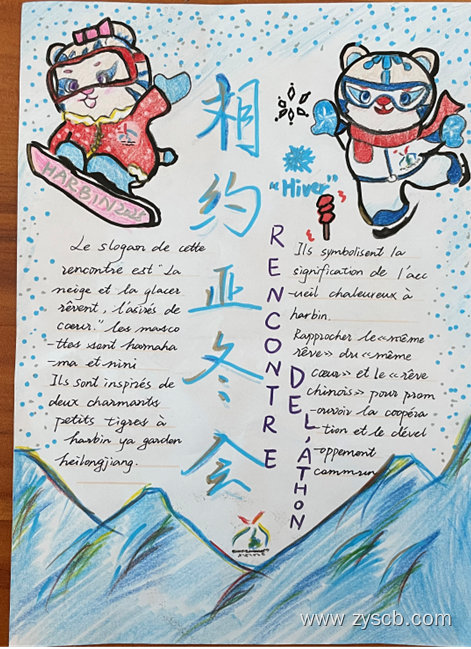 相约亚冬会
"Hiver"
HARBIN 2025
RENCONTRE
DE L'ATHON
Le slogan de cette
rencontre est "la
neige et la glacer
rêvent, l'asirés de
cœur." les masco
-ttes sont hamaha
-ma et nini
Ils sont inspirés de
deux charmants
petits tigres à
harbin ya garden
heilongjiang.
Ils symbolisent la
signification de l'acc
-ueil chaleureux à
harbin.
Rapprocher le «même
rêve» du «même
cœur» et le «rêve
chinois» pour prom
-ouvoir la coopéra
-tion et le dével
-oppement
commun
www.zyscb.com